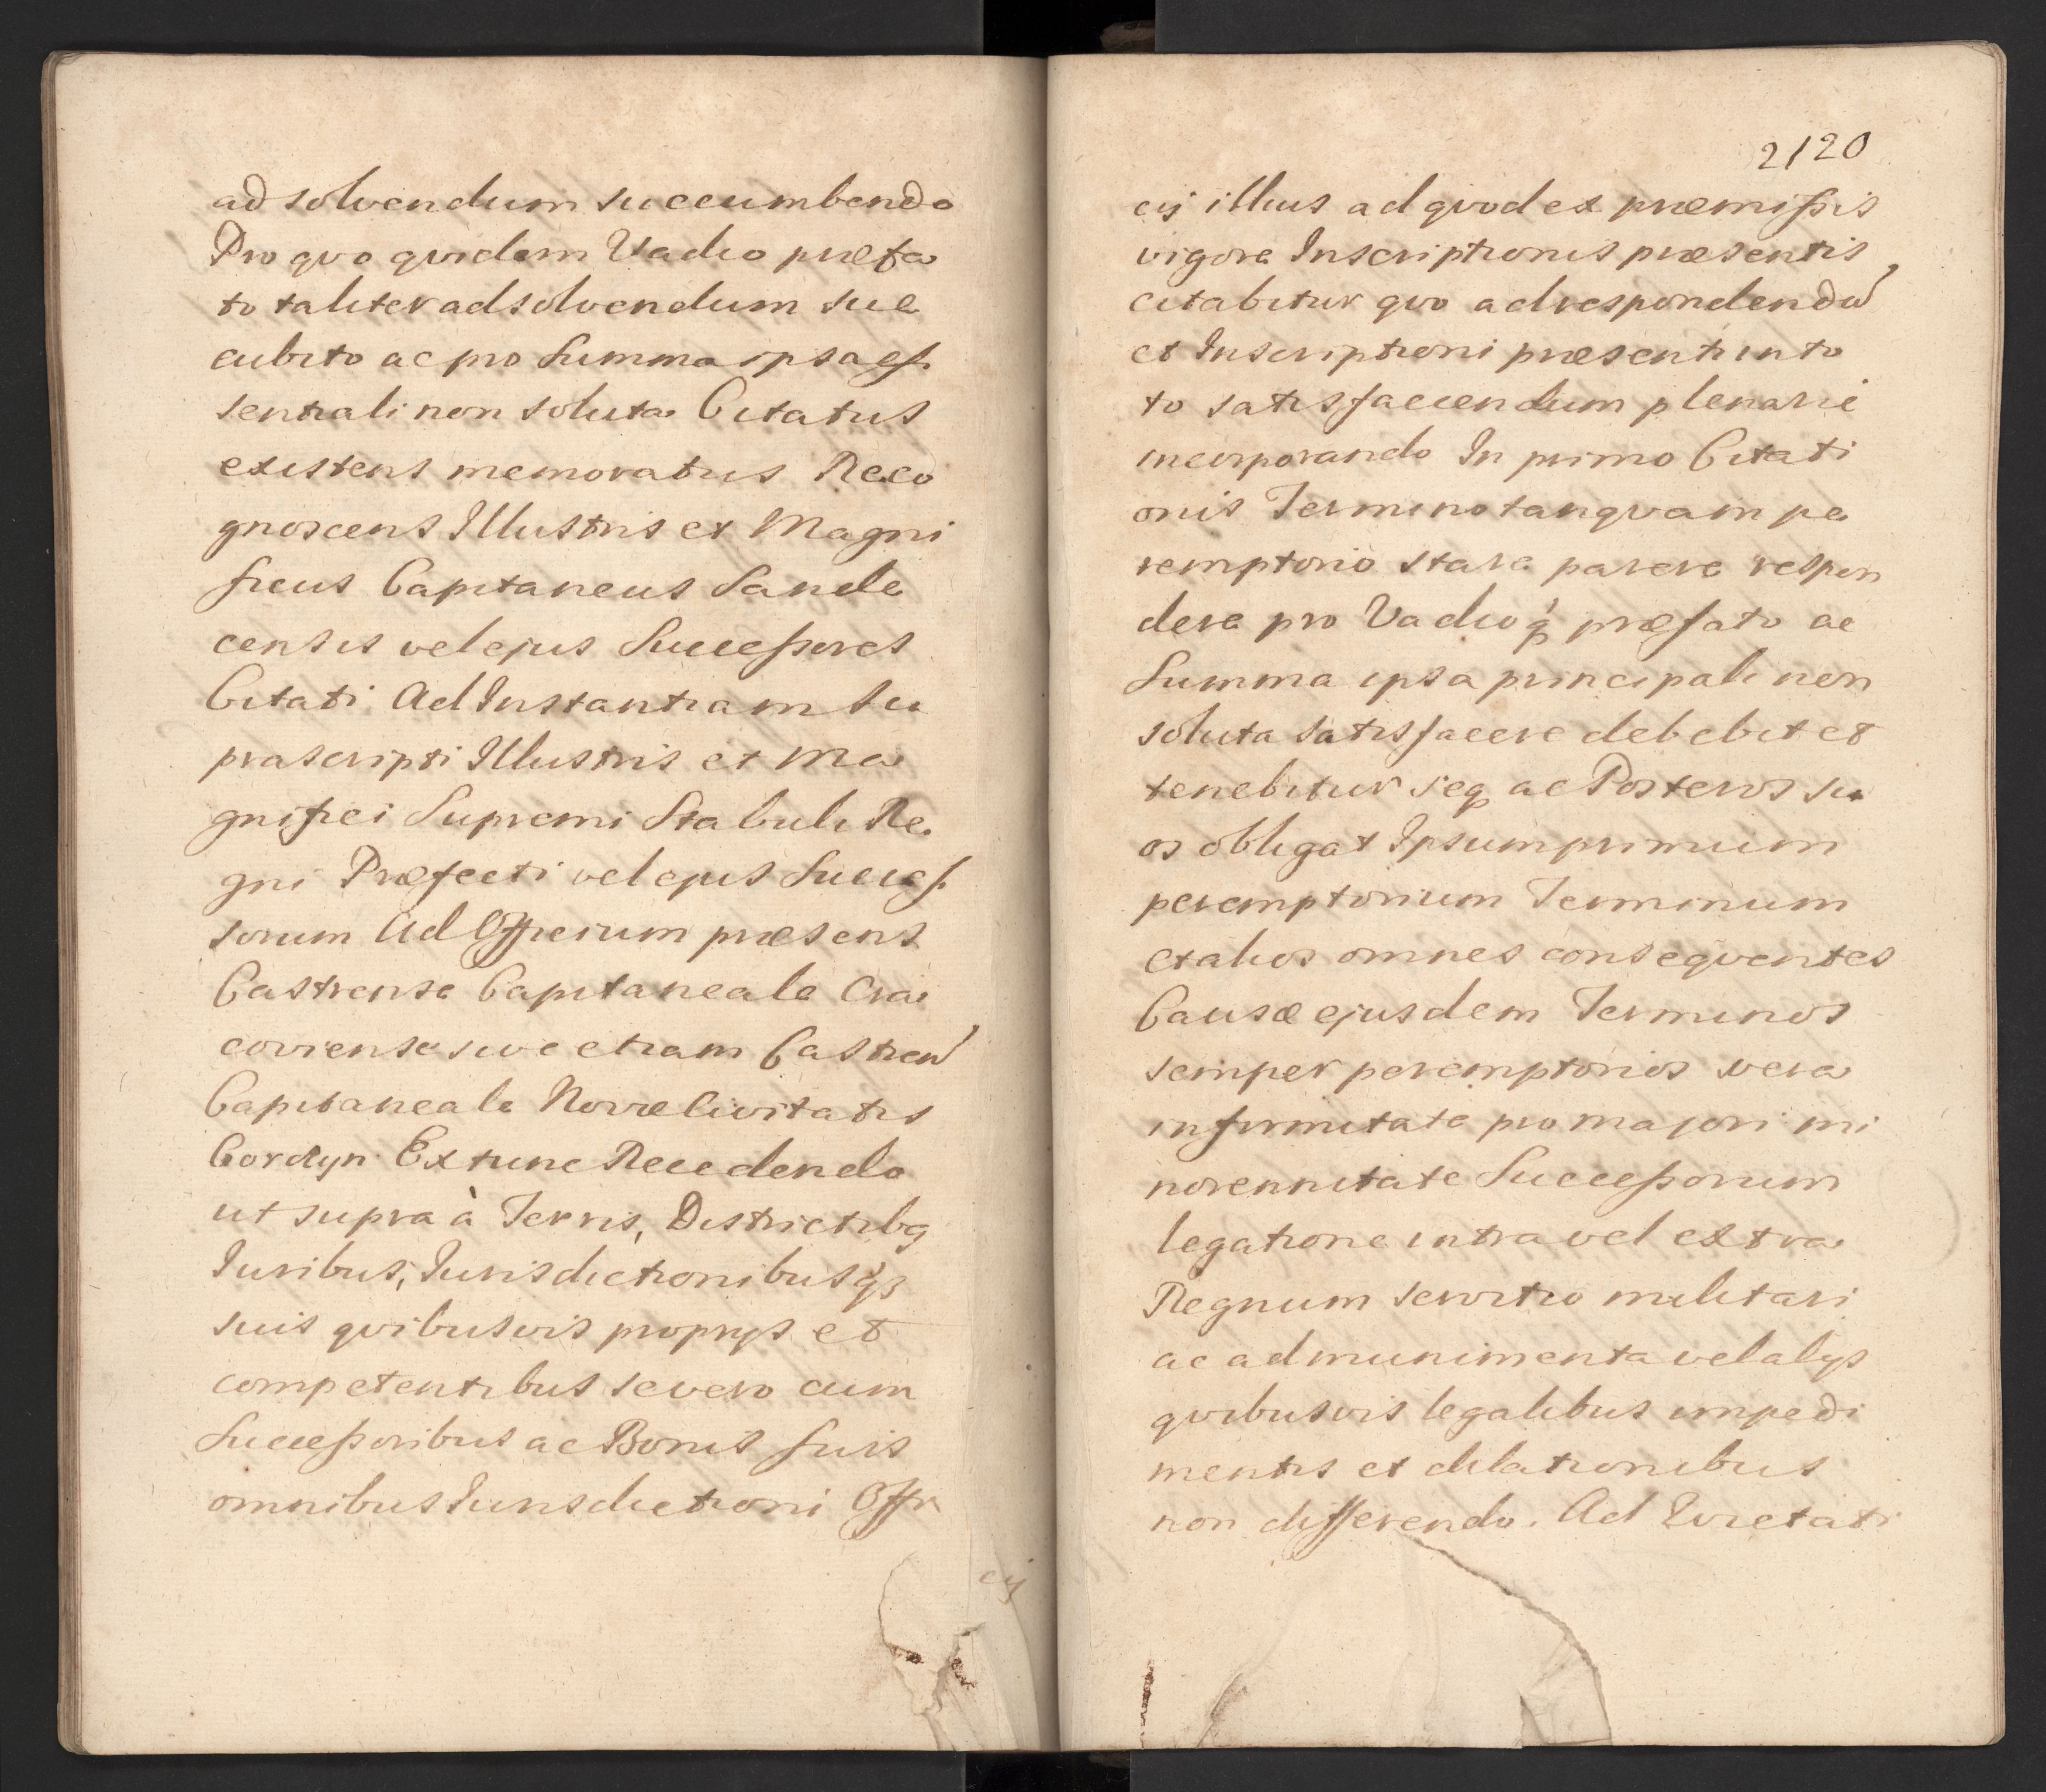 ad solvendum succumbendo
Pro qvo qvidem Vadio præfa
to taliter ad solvendum suc
cubito ac pro Summa ipsa es
sentiali non soluta Citatus
existens memoratus Reco
gnoscens Illustris et Magni
ficus Capitaneus Sande
censis vel ejus Successores
Citati Ad Instantiam Su
prascripti Illustris et Ma
gnifici Supremi Stabuli Re
gni Præfecti vel ejus Succes
sorum Ad Officium præsens
Castrense Capitaneale Cra
coviense sive etiam Castren̄
Capitaneale Novæ Civitatis
Corczyn Ex tunc Recedendo
ut supra à Terris, Districtibq
Iuribus, Iurisdictionibusq́3
suis qvibusvis proprys et
competentibus se vero cum
Successoribus ac Bonis suis
omnibus Iurisdictioni Offi
cij
2120
cij illius ad qvod ex præmissis
vigore Inscriptionis præsentis
citabitur qvo ad respondendū
et Inscriptioni præsenti in to
to satisfaciendum plenarie
incorporando In primo Citati
onis Termino tanqvam pe
remptorio stare parere respon
dere pro Vadioq́ præfato ac
Summa ipsa principali non
soluta satisfacere debebit et
tenebitur seq ac Posteros su
os obligat Ipsum primum
peremptorium Terminum
et alios omnes conseqventes
Causæ ejusdem Terminos
semper peremptorios vera
infirmitate pro majori mi
norennitate Successorum
legatione intra vel extra
Regnum servitio militari
ac ad munimenta vel alys
qvibusvis legalibus impedi
mentis et dilationibus
non differendo. Ad Evictati